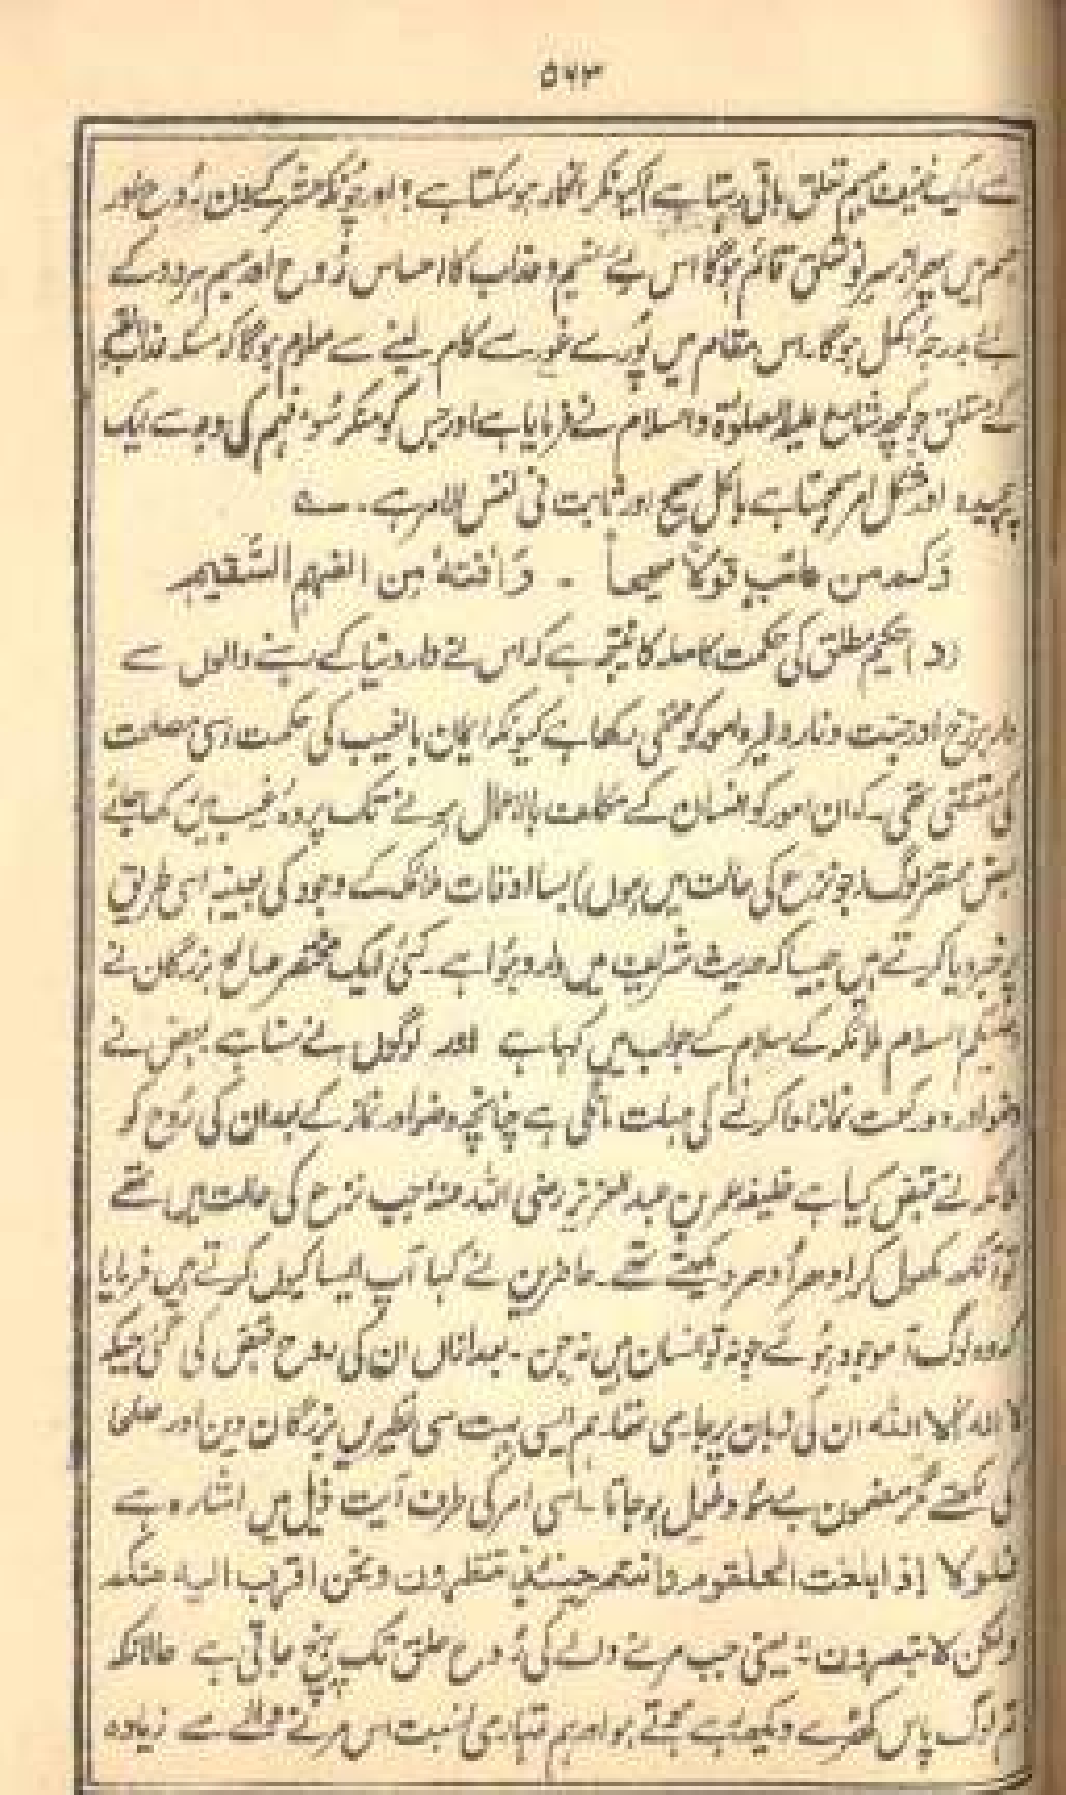 ۵۶۳
سے ایک خفیف قسم تعلق باقی رہتا ہے) کیونکر انکار ہو سکتا ہے؟ اور چونکہ حشر کے دن رُوح اور
جسم میں پھر از سرِ نو تعلق قائم ہوگا اس لئے نعیم و عذاب کا احساس رُوح اور جسم ہر دو کے
لئے بدرجہ اکمل ہوگا۔ اس مقام میں پُورے غور سے کام لینے سے معلوم ہوگا کہ مسئلہ عذاب القبر
کے متعلق جو کچھ شارع علیہ الصلوٰة والسلام نے فرمایا ہے اور جس کو منکر سُوء فہم کی وجہ سے ایک
پیچیدہ اور مشکل امر سمجھتا ہے بالکل صحیح اور ثابت فی نفس الامر ہے۔ ؎
وَکَم من عائبٍ قَولاً صحیحاً ۔ وَاٰفتہٗ مِن الفہم السَّقیم
(و) حکیم مطلق کی حکمت کاملہ کا نتیجہ ہے کہ اس نے دار دنیا کے رہنے والوں سے
دار برزخ اور جنت و نار وغیرہ امور کو مخفی رکھا ہے کیونکہ ایمان بالغیب کی حکمت اسی مصلحت
کی مقتضی تھی۔ کہ ان امور کو انسان کے مکلف بالاعمال ہونے تک پردہ غیب میں رکھا جائے
بعض محتضر لوگ (جو نزع کی حالت میں ہوں) بسا اوقات ملائکہ کے وجود کی بعینہٖ اسی طریق
پر خبر دیا کرتے ہیں جیسا کہ حدیث شریف میں وارد ہوا ہے۔ کئی ایک محتضر صالح بزرگان نے
وعلیکم السلام ملائکہ کے سلام کے جواب میں کہا ہے اور لوگوں نے سنا ہے بعض نے
وضو اور دو رکعت نماز ادا کرنے کی مہلت مانگی ہے چنانچہ وضو اور نماز کے بعد ان کی رُوح کو
ملائکہ نے قبض کیا ہے خلیفہ عمر بن عبد العزیز رضی اللہ عنہ جب نزع کی حالت میں تھے
تو آنکھ کھول کر ادھر اُدھر دیکھتے تھے۔ حاضرین نے کہا آپ ایسا کیوں کرتے ہیں فرمایا
کہ وہ لوگ آ موجود ہوئے جو نہ تو انسان ہیں نہ جن۔ بعد ازاں ان کی روح قبض کی گئی جبکہ
لا الہ الا اللہ ان کی زبان پر جاری تھا۔ ہم ایسی بہت سی نظیریں بزرگان دین اور صلحا
کی لکھتے مگر مضمون بے سود طویل ہو جاتا۔ اسی امر کی طرف آیت ذیل میں اشارہ ہے
فلولا اذا بلغت الحلقوم وانتم حینئذٍ تنظرون ونحن اقرب الیہ منکم
ولکن لا تبصرون: یعنی جب مرنے والے کی رُوح حلق تک پہنچ جاتی ہے حالانکہ
تم لوگ پاس کھڑے دیکھ رہے ہوتے ہو اور ہم تمہاری نسبت اس مرنے والے سے زیادہ